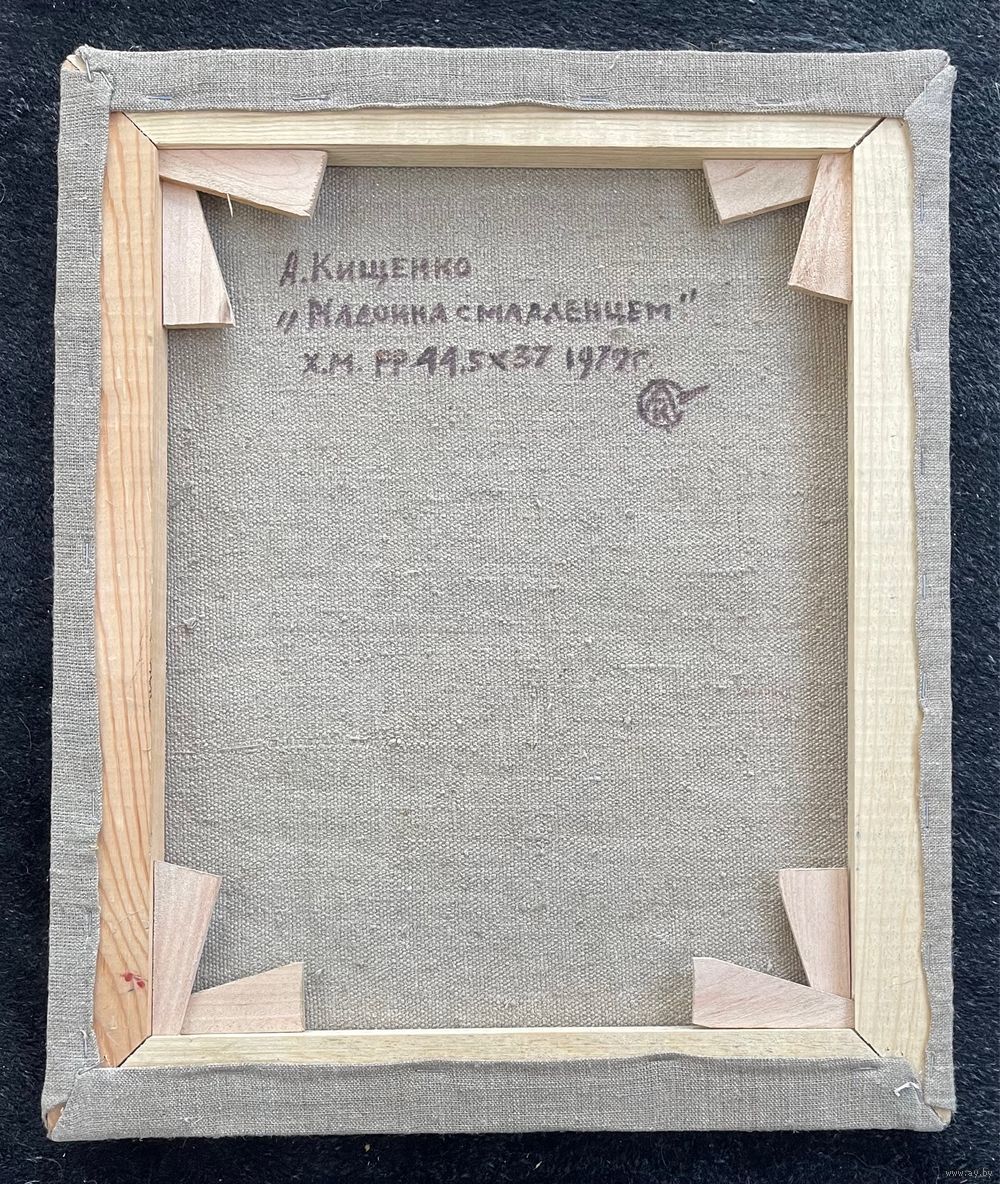 А. Кищенко
„Мадонна с младенцем"
х.м. рр 44,5х37 1979г.
АК
www.ay.by